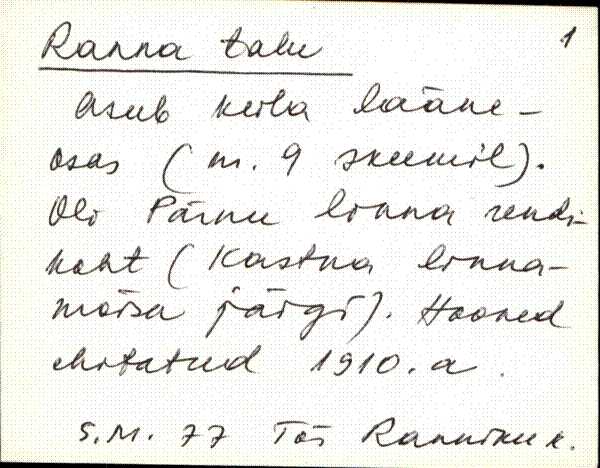 Ranna talu 1
Asub küla lääne-
osas (m. 9 skeemil).
Oli Pärnu linna rendi-
koht (Kastna linna-
mõisa järgi). Hooned
ehitatud 1910. a.
S.M. 77 Tõs Ranniku k.